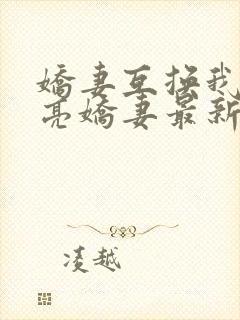 嬌妻互換我
亮嬌妻最新
凌越